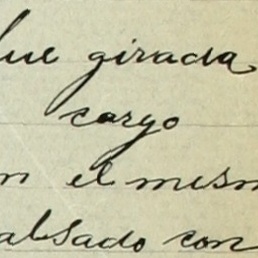 fue girada
cargo
en el mism
alsado con